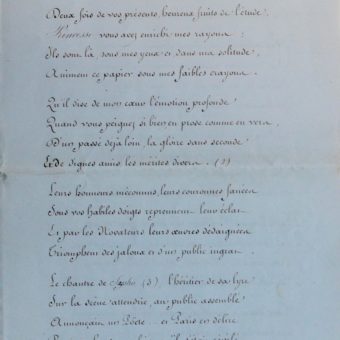 Deux fois de vos présents heureux fruits de l'étude,
Princesse vous avez enrichi mes rayons
Ils sont là sous mes yeux et dans ma solitude,
Animent ce papier sous mes faibles crayons.
Qu'il dise de mon cœur l'émotion profonde
Quand vous peignez si bien en prose comme en vers,
D'un passé déjà loin, la gloire sans seconde
Et de dignes amis les mérites divers. (2)
Leurs honneurs méconnus, leurs couronnes fanées
Sous vos habiles doigts reprennent leur éclat
Et par les Novateurs leurs œuvres dédaignées
Triomphent des jaloux et d'un public ingrat.
Le chantre de (3) l'héritier de sa lyre
Sur la scène attendrie, au public assemblé
Annonçam un Poète... et Paris en délire